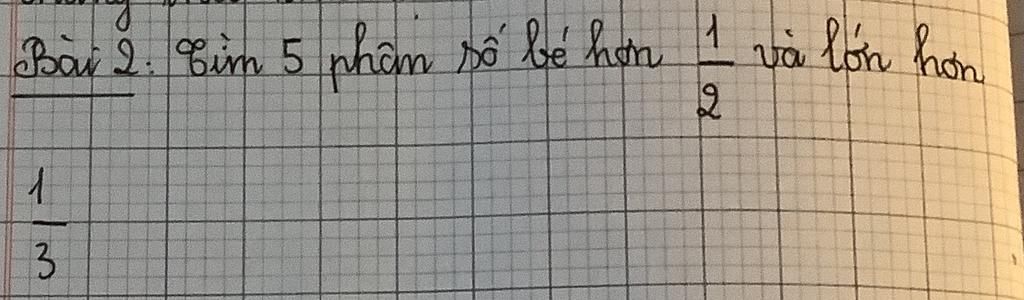 Bài 2: Tìm 5 phân số bé hơn 1/2 và lớn hơn
1/3